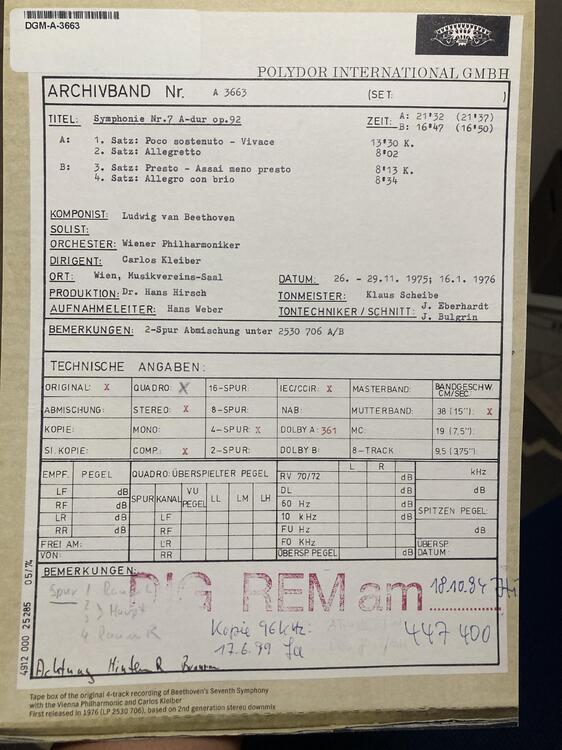 DGM-A-3663
POLYDOR INTERNATIONAL GMBH
ARCHIVBAND Nr. A 3663 (SET: )
TITEL: Symphonie Nr.7 A-dur op.92 ZEIT: A: 21'32 (21'37)
B: 16'47 (16'50)
A: 1. Satz: Poco sostenuto - Vivace 13'30 K.
2. Satz: Allegretto 8'02
B: 3. Satz: Presto - Assai meno presto 8'13 K.
4. Satz: Allegro con brio 8'34
KOMPONIST: Ludwig van Beethoven
SOLIST:
ORCHESTER: Wiener Philharmoniker
DIRIGENT: Carlos Kleiber
ORT: Wien, Musikvereins-Saal DATUM: 26. - 29.11. 1975; 16.1. 1976
PRODUKTION: Dr. Hans Hirsch TONMEISTER: Klaus Scheibe
AUFNAHMELEITER: Hans Weber TONTECHNIKER / SCHNITT: J. Eberhardt
J. Bulgrin
BEMERKUNGEN: 2-Spur Abmischung unter 2530 706 A/B
TECHNISCHE ANGABEN:
ORIGINAL: X QUADRO: X 16-SPUR: IEC/CCIR: X MASTERBAND: BANDGESCHW. CM/SEC.
ABMISCHUNG: STEREO: X 8-SPUR: NAB: MUTTERBAND: 38 (15"): X
KOPIE: MONO: 4-SPUR: X DOLBY A: 361 MC: 19 (7,5"):
SI. KOPIE: COMP.: X 2-SPUR: DOLBY B: 8-TRACK 9,5 (3,75"):
EMPF. PEGEL QUADRO: ÜBERSPIELTER PEGEL RV 70/72 L R dB kHz
LF dB SPUR KANAL VU PEGEL LL LM LH DL dB dB
RF dB LF 60 Hz dB SPITZEN PEGEL:
LR dB RF 10 kHz dB
RR dB LR FU Hz dB dB
FREI AM: LR FO KHz ÜBERSP.
VON: RR ÜBERSP. PEGEL dB DATUM:
BEMERKUNGEN:
DIG REM am 18.10.94
Spur 1 Raum L
2
3 > Haupt
4 Raum R
Kopie 96kHz:
17.6.99
447 400
Achtung Hinten R
4912 000 25 285 05/74
Tape box of the original 4-track recording of Beethoven's Seventh Symphony
with the Vienna Philharmonic and Carlos Kleiber
First released in 1976 (LP 2530 706), based on 2nd generation stereo downmix